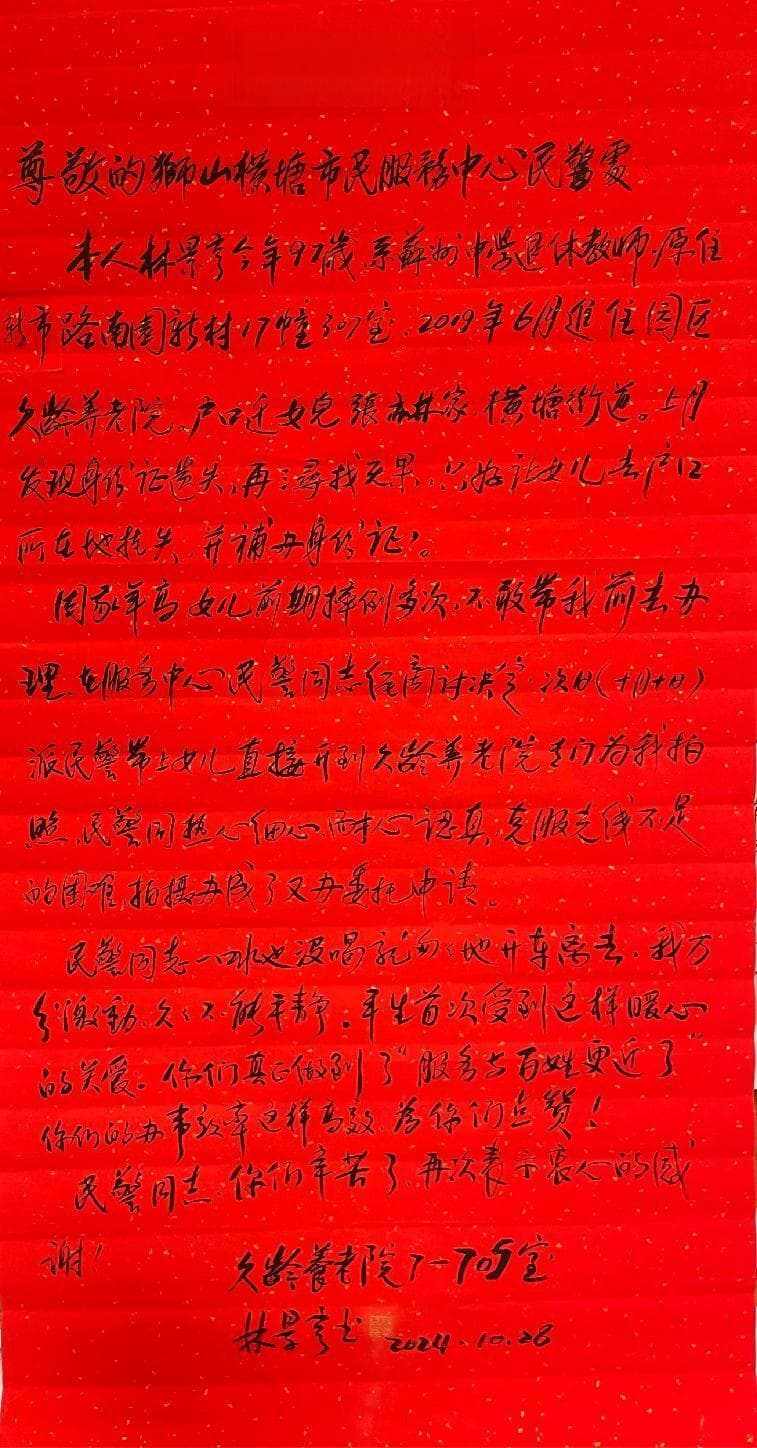 尊敬的獅山橫塘市民服務中心民警處
本人林景亨今年97歲,系蘇州中學退休教師.原住
新市路南園新村17幢307室.2019年6月進住园区
久齡养老院。户口迁女兒張林家橫塘街道。上月
发现身份证遗失,再三尋找无果,只好让女儿去户口
所在地挂失,并補办身份证。
因我年高女儿前期摔倒多次,不敢带我前去办
理,在服务中心民警同志经商讨决定次日(十月十日)
派民警带上女儿直接开到久齡养老院专门为我拍
照,民警同热心细心、耐心、認真,克服光线不足
的困难,拍摄办成了又办委托申请。
民警同志一口水也没喝就匆匆地开车离去,我万
分激動,久久不能平静。平生首次受到这样暖心
的关爱。你们真正做到了“服务与百姓更近了”
你们的办事效率这样高效,為你们点赞!
民警同志,你们辛苦了,再次表示衷心的感
謝!
久齡養老院7-705室
林景亨书 2024.10.28